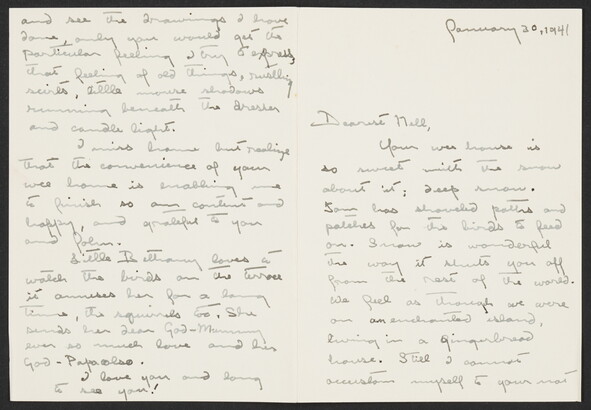 January 30, 1941
Dearest Nell,
Your wee house is
so sweet with the snow
about it; deep snow.
Sam has shoveled paths and
patches for the birds to feed
on. Snow is wonderful
the way it shuts you off
from the rest of the world.
We feel as though we were
on an enchanted island,
living in a gingerbread
house. Still I cannot
accustom myself to your not
and see the drawings I have
done, only you would get the
particular feeling I try to express,
that feeling of old things, rustling
skirts, little mouse shadows
running beneath the dresser
and candle light.
I miss home but realize
that the convenience of your
wee home is enabling me
to finish so am content and
happy, and grateful to you
and John.
Little Bethany loves to
watch the birds on the terrace
it amuses her for a long
time, the squirrels too. She
sends her dear God-Mummy
ever so much love and her
God-Papa also.
I love you and long
to see you!